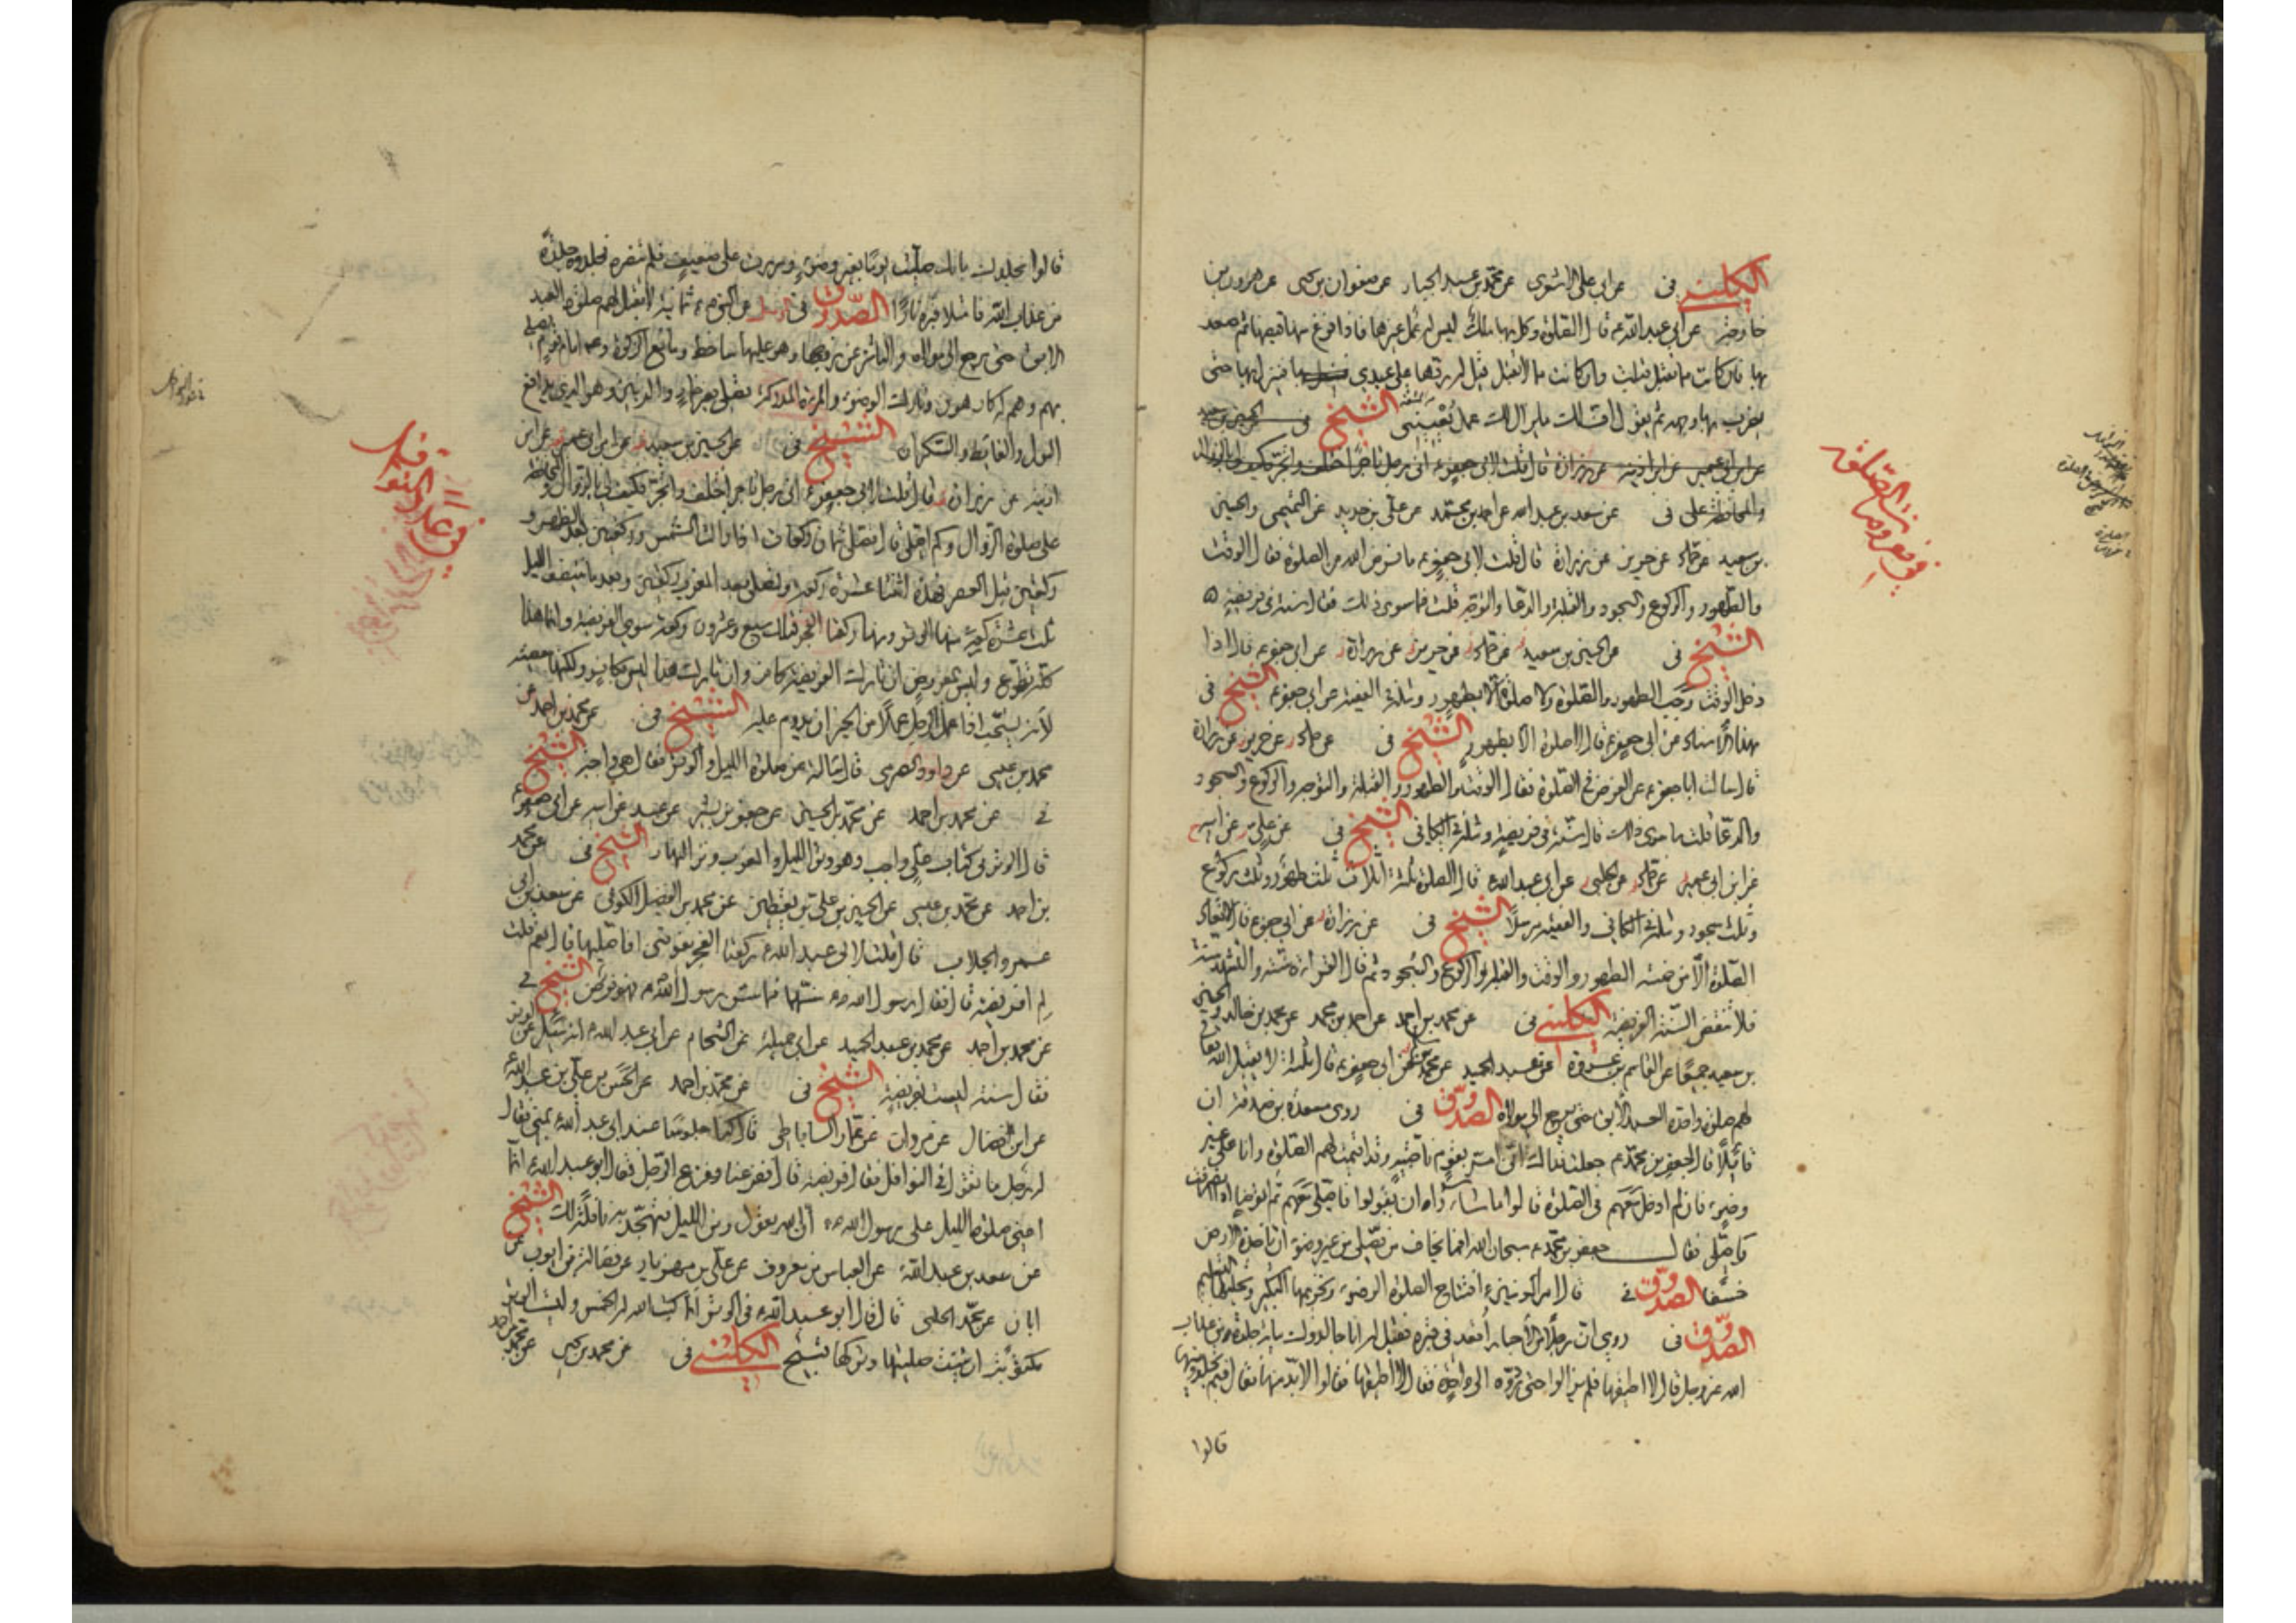 الكليني فى عن ابى على الاشعرى عن محمد بن عبد الجبار عن صفوان بن يحيى عن هرون بن
خارجة عن ابي عبد الله ع قال الصلوة وكل بها ملك ليس له عمل غيرها فاذا فرغ منها قبضها ثم صعد
بها فان كانت مما تقبل قبلت وان كانت مما لا تقبل قيل له ردها على عبدي فينزل بها حتى
يضرب بها وجهه ثم يقول اف لك ما يزال لك عمل يعنيني الشيخ فى الحسين بن سعيد
عن ابن ابي عمير عن ابن اذينه عن زرارة قال قلت لابى جعفر ع انى رجل تاجر اختلف واتجر فكيف لى بالزوال
والمحافظة على فى عن سعد بن عبد الله عن احمد بن محمد عن على بن حديد عن التميمي والحسين
بن سعيد عن حماد عن حريز عن زرارة قال قلت لابي جعفر ع ما فرض الله من الصلوة فقال الوقت
والطهور والركوع والسجود والقبلة والدعا والتوجه قلت فما سوى ذلك فقال سنة فى فريضة
الشيخ فى عن الحسين بن سعيد عن حماد عن حريز عن زرارة عن ابى جعفر ع قال اذا
دخل الوقت وجب الطهور والصلوة ولا صلوة الا بطهور ومثله فى الفقيه عن ابى جعفر ع الشيخ فى
بهذا الاسناد عن ابى جعفر ع قال لا صلوة الا بطهور الشيخ فى عن حماد عن حريز عن زرارة
قال سالت ابا جعفر ع عن الفرض فى الصلوة فقال الوقت والطهور والقبلة والتوجه والركوع والسجود
والدعا قلت ما سوى ذلك قال سنة فى فريضة ومثله فى الكافى الشيخ فى عن على عن ابيه
عن ابن ابي عمير عن حماد عن الحلبى عن ابى عبد الله ع قال الصلوة ثلثة اثلاث ثلث طهور وثلث ركوع
وثلث سجود ومثله فى الكافى والفقيه مرسلا الشيخ فى عن زرارة عن ابي جعفر ع قال لا تعاد
الصلوة الا من خمسة الطهور والوقت والقبلة والركوع والسجود ثم قال القراءة سنة والتشهد سنة
فلا تنقض السنة الفريضة الكليني فى عن محمد بن احمد عن احمد بن محمد عن محمد بن خالد والحسين
بن سعيد جميعا عن القاسم بن عروة عن عبد الحميد عن محمد عن ابى جعفر ع قال ثلثة لا يقبل الله تعالى
لهم صلوة واحدة العبد الابق حتى يرجع الى مولاه الصدوق فى روى مسعدة بن صدقة ان
قائلا قال لجعفر بن محمد ع جعلت فداك انى امر بقوم ناصبية وقد اقيمت لهم الصلوة وانا على غير
وضوء فان لم ادخل معهم فى الصلوة قالوا ما شاؤا ان يقولوا فاصلى معهم ثم اتوضا اذا انصرفت
واصلى فقال جعفر بن محمد ع سبحان الله افما يخاف من يصلى من غير وضوء ان تاخذه الارض
خسفا الصدوق فى قال امير المؤمنين ع افتتاح الصلوة الوضوء وتحريمها التكبير وتحليلها التسليم
الصدوق فى روى ان رجلا من الاحبار اقعد فى قبره فقيل له انا جالدوك مائة جلدة من عذاب
الله عز وجل قال لا اطيقها فلم يزالوا حتى ردوه الى واحدة فقال لا اطيقها فقالوا لا بد منها فقال فيم تجلدونيها
قالوا
فى فرض الصلوة
قالوا نجلدك بانك صليت يوما بغير وضوء ومررت على ضعيف فلم تنصره فجلدوه جلدة
من عذاب الله فامتلا قبره نارا الصدوق فى عن النبى ص ثمانية لا يقبل لهم صلوة العبد
الابق حتى يرجع الى مولاه والناشز عن زوجها وهو عليها ساخط ومانع الزكوة وامام قوم يصلى
بهم وهم له كارهون وتارك الوضوء والمراة المدركة تصلى بغير خمار والزنين وهو الذي يدافع
البول والغايط والسكران الشيخ فى عن الحسين بن سعيد عن ابن ابى عمير عن ابن
اذينه عن زرارة قال قلت لابى جعفر ع انى رجل تاجر اختلف واتجر فكيف لى بالزوال والمحافظة
على صلوة الزوال وكم اصلى قال تصلى ثمان ركعات اذا زالت الشمس وركعتين بعد الظهر و
ركعتين قبل العصر فهذه اثنتا عشرة ركعة وتصلى بعد المغرب ركعتين وبعد ما ينتصف الليل
ثلث عشرة ركعة منها الوتر ومنها ركعتا الفجر فذلك سبع وعشرون ركعة سوى الفريضة وانما هذا
كله تطوع وليس بمفروض ان تارك الفريضة كافر وان تارك هذا ليس بكافر ولكنها معصية
لانه يستحب اذا عمل الرجل عملا من الخير ان يدوم عليه الشيخ فى عن محمد بن احمد عن
محمد بن عيسى عن داود الصرمى قال سالته عن صلوة الليل والوتر فقال هى واجبة الشيخ
فى عن محمد بن احمد عن محمد بن الحسين عن جعفر بن بشير عن عبيد عن ابيه عن ابى جعفر ع
قال الوتر فى كتاب على واجب وهو وتر الليل والمغرب وتر النهار الشيخ فى عن محمد
بن احمد عن محمد بن عيسى عن الحسين بن على بن يقطين عن محمد بن الفضيل الكوفى عن سعد بن ابى
عمرو الجلاب قال قلت لابى عبد الله ع ركعتا الفجر تفوتنى افاصليها قال نعم قلت
لم افريضة قال فقال رسول الله ص سنها فما سن رسول الله ص فهو فرض الشيخ فى
عن محمد بن احمد عن محمد بن عبد الحميد عن ابى جميلة عن الشحام عن ابى عبد الله ع انه سئل عن الوتر
فقال سنة ليست بفريضة الشيخ فى عن محمد بن احمد عن الحسن بن على بن عبد الله
عن ابن فضال عن مروان عن عمار الساباطى قال كنا جلوسا عند ابى عبد الله ع بمنى فقال
له رجل ما تقول فى النوافل فقال فريضة قال ففزعنا وفزع الرجل فقال ابو عبد الله ع انما
اعنى صلوة الليل على رسول الله ص ان الله يقول ومن الليل فتهجد به نافلة لك الشيخ
عن سعد بن عبد الله عن العباس بن معروف عن على بن مهزيار عن فضالة بن ايوب عن
ابان عن محمد الحلبى قال قال ابو عبد الله ع فى الوتر انما كتب الله الخمس وليست الوتر
مكتوبة ان شئت صليتها وتركها قبيح الكليني فى عن محمد بن يحيى عن محمد بن احمد